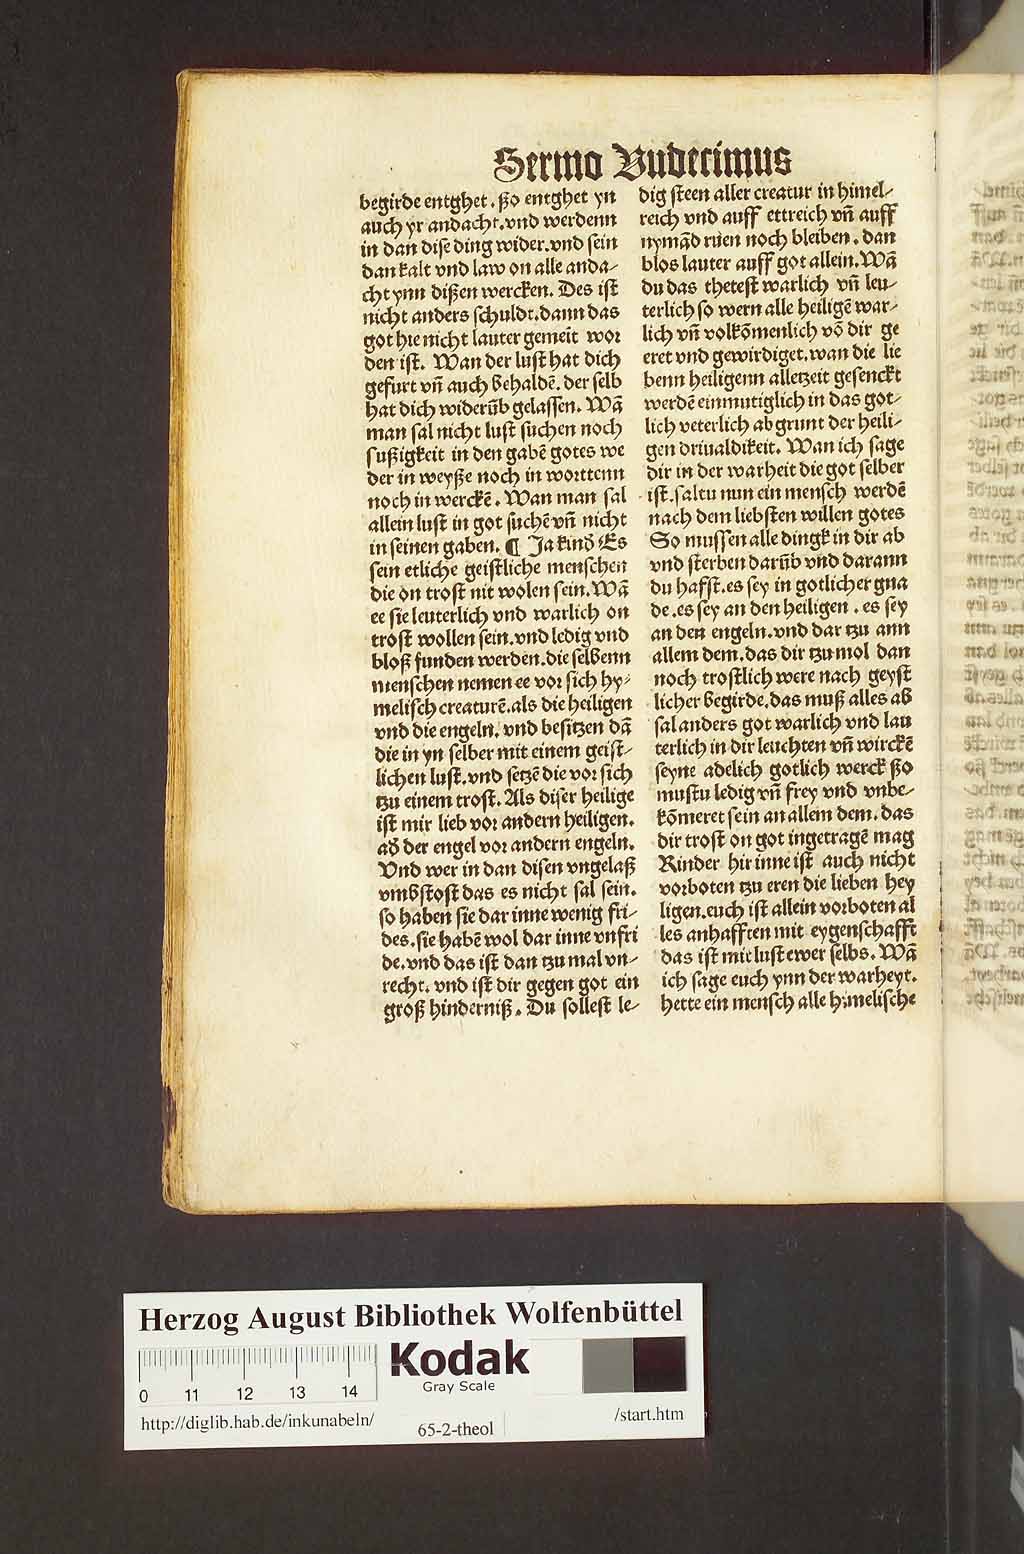 Sermo Vndecimus
begirde entghet. ßo entghet yn
auch yr andacht. vnd werdenn
in dan dise ding wider. vnd sein
dan kalt vnd law on alle anda⸗
cht ynn dißen wercken. Des ist
nicht anders schuldt. dann das
got hie nicht lauter gemeīt wor
den ist. Wan der lust hat dich
gefurt vn̄ auch behaldē. der selb
hat dich widerūb gelassen. Wā
man sal nicht lust suchen noch
sußigkeit in den gabē gotes we
der in weyße noch in worttenn
noch in werckē. Wan man sal
allein lust in got suchē vn̄ nicht
in seinen gaben. ¶ Ja kinď Es
sein etliche geistliche menschen
die on trost nit wolen sein. Wā
ee sie leuterlich vnd warlich on
trost wollen sein. vnd ledig vnd
bloß funden werden. die selbenn
menschen nemen ee vor sich hy⸗
melisch creaturē. als die heiligen
vnd die engeln. vnd besitzen dā
die in yn selber mit einem geist⸗
lichen lust. vnd setzē die vor sich
tzu einem trost. Als diser heilige
ist mir lieb vor andern heiligen.
ad der engel vor andern engeln.
Vnd wer in dan disen vngelaß
vmbstost das es nicht sal sein.
so haben sie dar inne wenig fri⸗
des. sie habē wol dar inne vnfri
de. vnd das ist dan tzu mal vn⸗
recht. vnd ist dir gegen got ein
groß hinderniß. Du sollest le⸗
dig steen aller creatur in himel⸗
reich vnd auff ettreich vn̄ auff
nymād ruen noch bleiben. dan
blos lauter auff got allein. Wā
du das thetest warlich vn̄ leu⸗
terlich so wern alle heiligē war⸗
lich vn̄ volkōmenlich vō dir ge
eret vnd gewirdiget. wan die lie
benn heiligenn alletzeit gesenckt
werdē einmutiglich in das got⸗
lich veterlich abgrunt der heili⸗
gen driualdikeit. Wan ich sage
dir in der warheit die got selber
ist. saltu nun ein mensch werdē
nach dem liebsten willen gotes
So mussen alle dingk in dir ab
vnd sterben darūb vnd darann
du hafft. es sey in gotlicher gna
de. es sey an den heiligen. es sey
an den engeln. vnd dar tzu ann
allem dem. das dir tzu mol dan
noch trostlich were nach geyst
licher begirde. das muß alles ab
sal anders got warlich vnd lau
terlich in dir leuchten vn̄ wirckē
seyne adelich gotlich werck ßo
mustu ledig vn̄ frey vnd vnbe⸗
kōmeret sein an allem dem. das
dir trost on got ingetragē mag
Kinder hir inne ist auch nicht
vorboten tzu eren die lieben hey
ligen. euch ist allein vorboten al
les anhafften mit eygenschafft
das ist mit lust ewer selbs. Wā
ich sage euch ynn der warheyt.
hette ein mensch alle himelische
Herzog August Bibliothek Wolfenbüttel
Kodak
Gray Scale
0 11 12 13 14
http://diglib.hab.de/inkunabeln/
65-2-theol
/start.htm